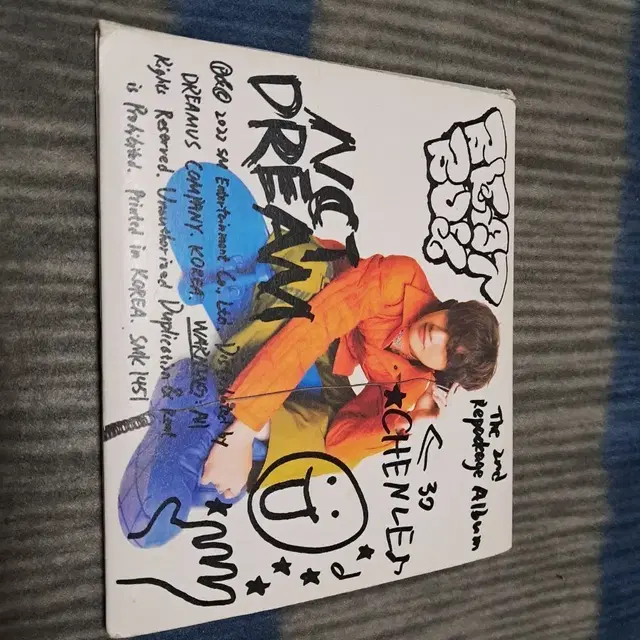 BEAT
BOX
The 2nd
Repackage Album
CHENLE
NCT
DREAM
℗&© 2022 SM Entertainment Co., Ltd. Distributed by
DREAMUS COMPANY. KOREA. WARNING: All
Rights Reserved. Unauthorized Duplication & Rent
is Prohibited. Printed in KOREA. SMK 1451